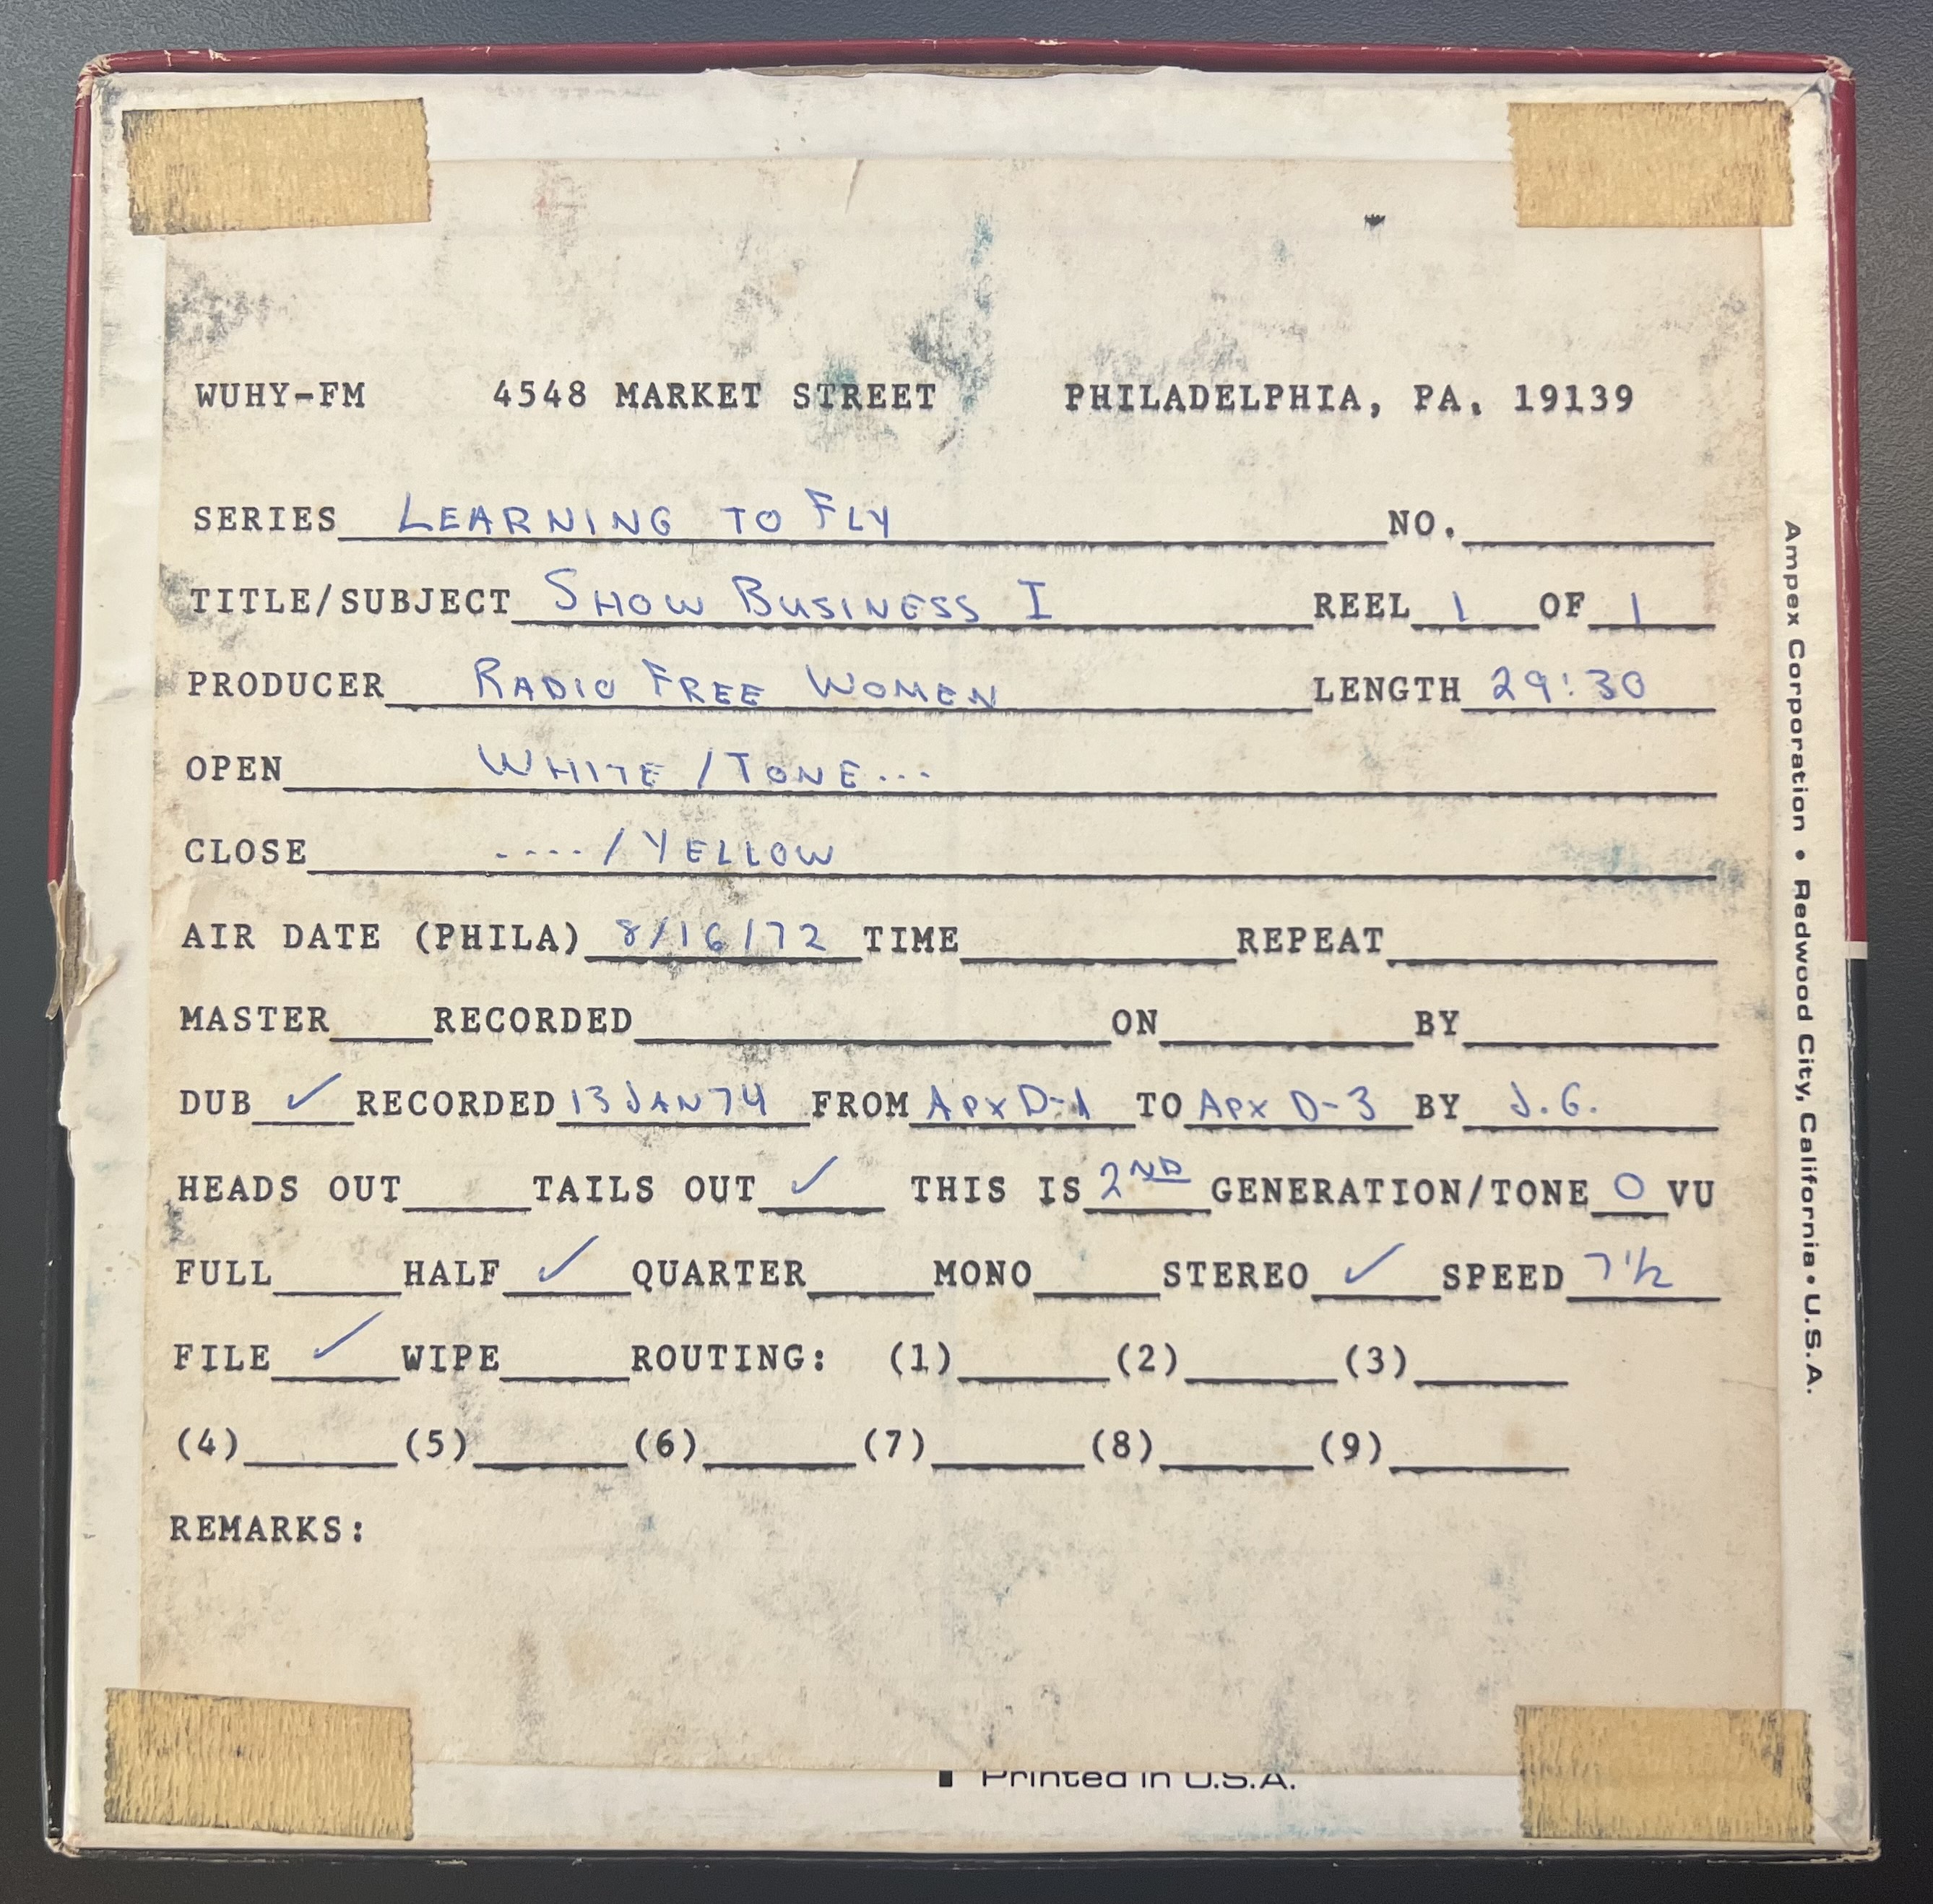 WUHY-FM 4548 MARKET STREET PHILADELPHIA, PA. 19139
SERIES LEARNING TO FLY NO.
TITLE/SUBJECT SHOW BUSINESS I REEL 1 OF 1
PRODUCER RADIO FREE WOMEN LENGTH 29:30
OPEN WHITE / TONE...
CLOSE ..../ YELLOW
AIR DATE (PHILA) 8/16/72 TIME REPEAT
MASTER RECORDED ON BY
DUB ✓ RECORDED 13 JAN 74 FROM APX D-1 TO APX D-3 BY J.G.
HEADS OUT TAILS OUT ✓ THIS IS 2ND GENERATION/TONE 0 VU
FULL HALF ✓ QUARTER MONO STEREO ✓ SPEED 7 1/2
FILE ✓ WIPE ROUTING: (1) (2) (3)
(4) (5) (6) (7) (8) (9)
REMARKS:
Printed in U.S.A.
Ampex Corporation • Redwood City, California • U.S.A.